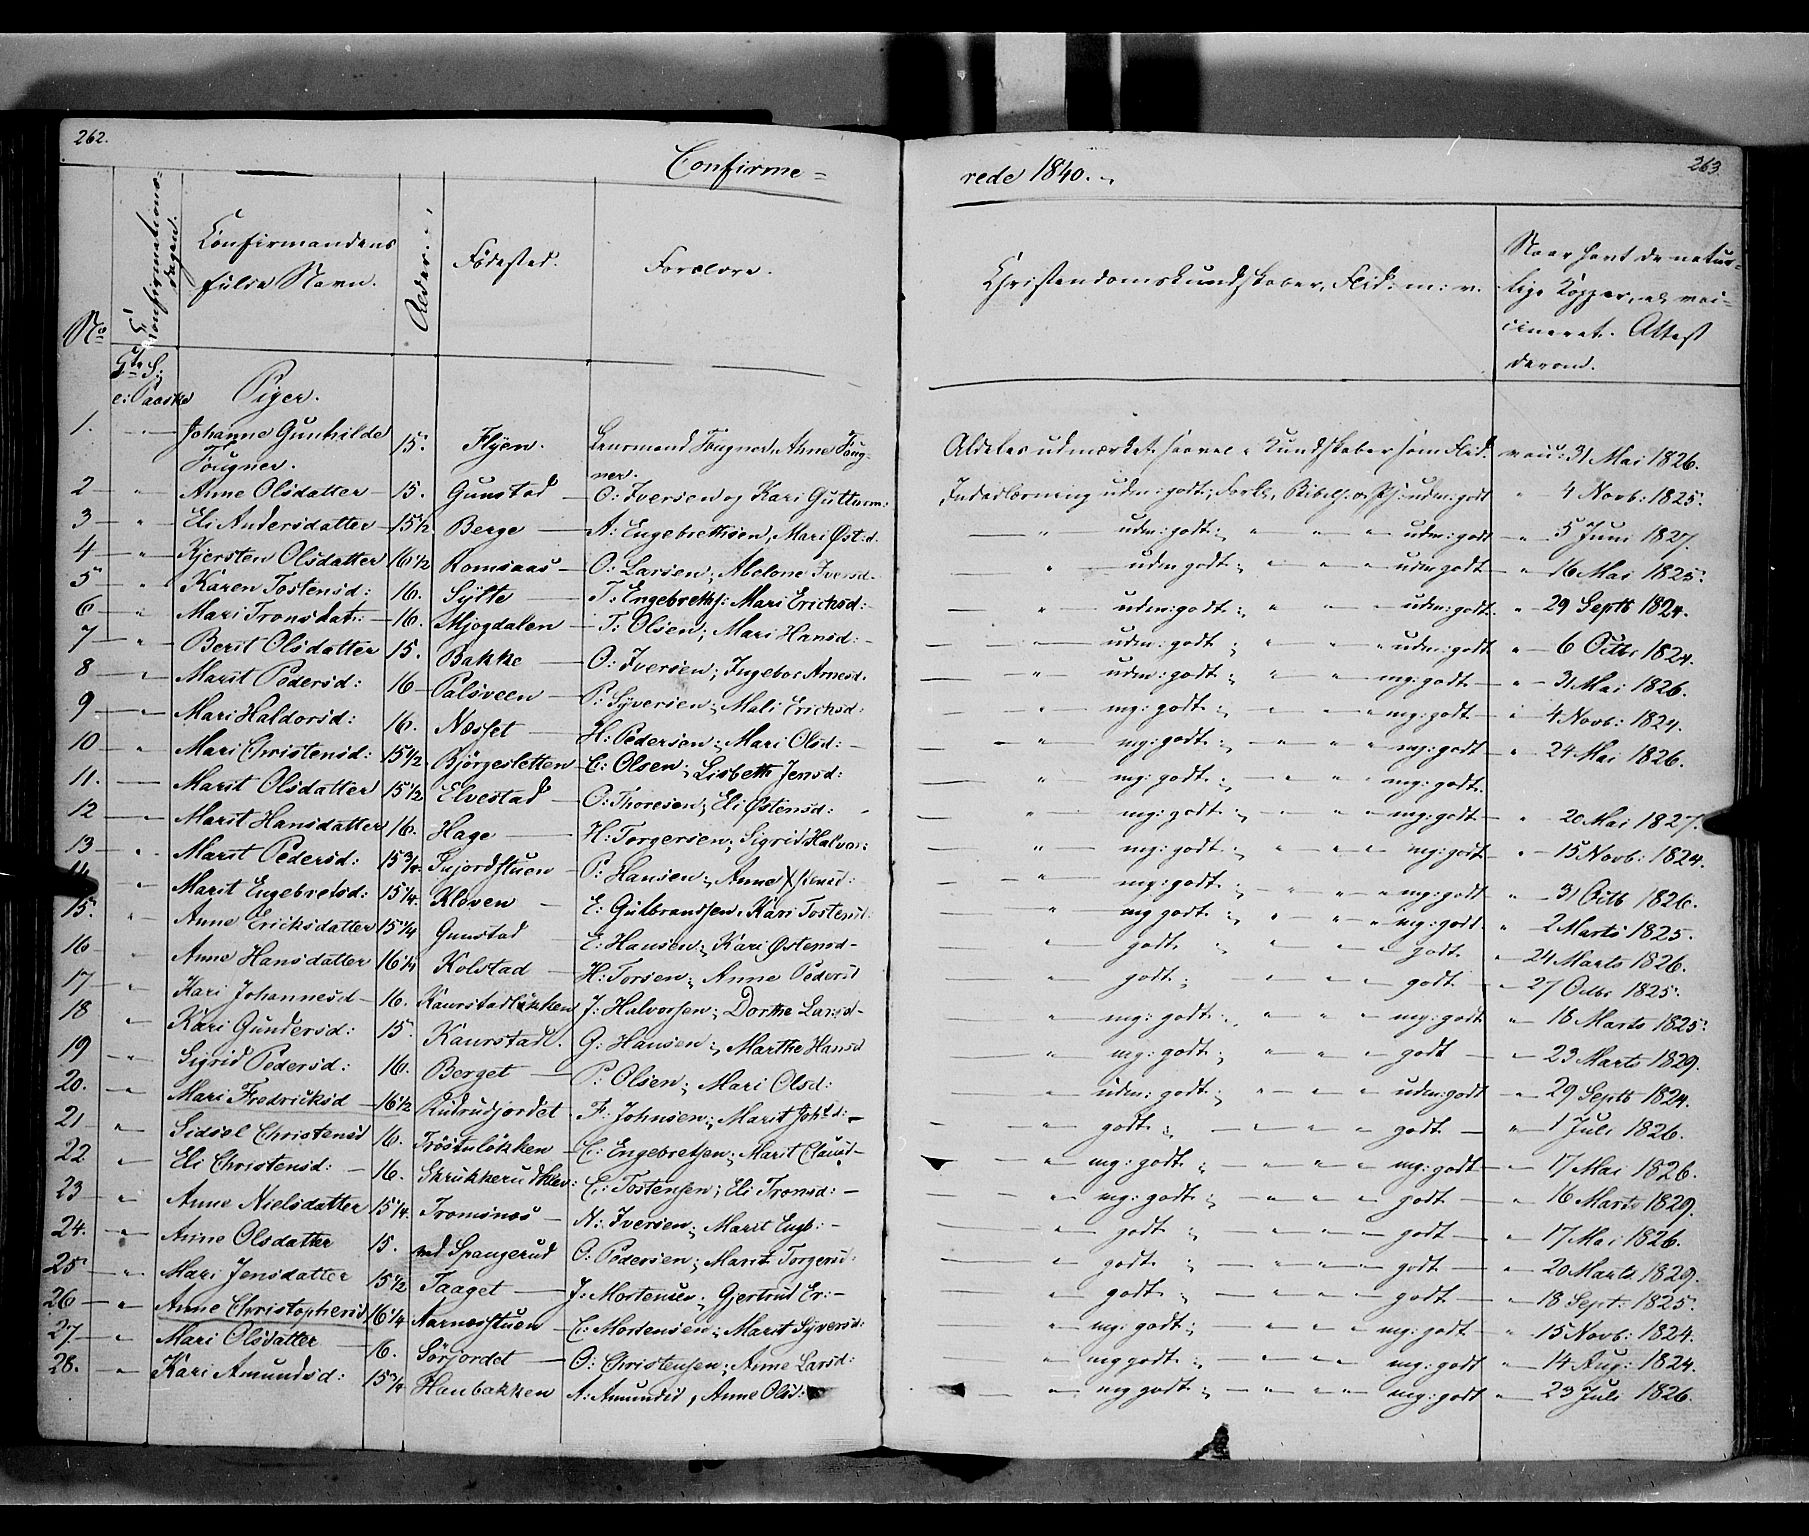 262.
Confirme=
No
Confirmations-
dagen.
Confirmandens
fulde Navn.
Alder.
Fødested.
Forældre.
5te S:
e: Paaske
Piger.
1. — " — Johanne Gunhilde Tougner. 15. Flyen. Leursmand Tougner, Anne Tougner.
2 — " Anne Olsdatter — 15. Gunstad — O: Iversen og Kari Guttorm:
3 — " Eli Andersdatter — 15 1/2 Berge — A: Engebrethsen, Mari Øst:d.
4 — " Kjersten Olsdatter 16 1/2 Romsaas — O: Larsen; Abelone Iversd.
5 — " Karen Tostensd: — 16. Sylte — T: Engebrethj: Mari Ericksd:
6 — " Mari Tronsdat: — 16. Skjogdalen — T: Olsen; Mari Hansd: —
7 — " Berit Olsdatter 15. Bakke — O: Iversen; Ingebor Arnesd.
8 — Marit Pedersd: 16 — Palsveen — P: Syversen; Mali Ericksd:
9 — Mari Haldorsd: 16. Næsset — H: Pedersen; Mari Olsd: —
10 — " Mari Christensd: 15 1/2 Bjørgesletten C: Olsen; Lisbeth Jensd:
11. — Marit Olsdatter 15 1/2 Elvestad — O: Thoresen; Eli Østensd:
12 — Marit Hansdatter 16. Hage — H: Torgersen; Sigrid Halvor:
13 — " Marit Pedersd: 15 3/4 — P: Hansen; Anne
14 " Marit Engebretsd: 15 1/4 Kløven — E: Gulbrandsen, Kari Tostensd:
15. " Anne Ericksdatter 15 1/4 Gunstad — E: Hansen; Kari Østensd —
16 — " Anne Hansdatter 16 1/4 Kolstad — H: Torsen; Anne Pedersd
17 — " Kari Johannesd — 16. Kaurstadløkken J: Halvorsen; Dorthe Larsd —
18 " Kari Gundersd: 15 Kaurstad. G: Hansen; Marthe Hansd
19 — " Sigrid Pedersd: 16. Berget — P: Olsen; Mari Olsd:
20. — " Mari Fredricksd — 16 1/2 Rudrudjordet F: Johnsen; Marit Johd: —
21 — " Sidsel Christensd 16. Trøstuløkken — C: Engebretsen; Marit Clausd —
22 — " Eli Christensd: — 16. Skrukkerudklev: C: Tostensen; Eli Tronsd: —
23 — " Anne Nielsdatter 15 1/4. Tromsnes — N: Iversen; Marit Engb: —
24. — " Anne Olsdatter 15. ned Spangerud O: Pedersen; Marit Torgersd:
25 — " Mari Jensdatter 15 1/2 Taaget — J: Mortensen; Gjertrud Er: —
26 — " Anne Christophersd 16 1/4 Aarnæsstuen — C: Mortensen; Marit Syversd:
27 — " Mari Olsdatter — 16. Sørjordet — O: Christensen; Anne Larsd:
28. " Kari Amundsd: 15 3/4 Haubakken A: Amundsd, Anne Olsd:
263.
rede 1840.
Christendomskundskaber, Flid: m: v.
Naar havt de natur-
lige Kopper, el vac-
cineret. Attest
derom.
Aldeles udmærket saavel i Kundskaber som Flid. vacc: 31 Mai 1826.
Indenadlæsning udm: godt; Forkl, Bibelh: o. Fl: udm: godt " 4 Novb: 1825.
— " udm: godt; " " " udm: godt — " 5 Juni 1827.
— " udm godt; — " " " udm godt — " 16 Mai 1825.
— " udm: godt; " " " udm: godt. " 29 Septb 1824.
— — " — udm: godt; " — " — " udm: godt " — 6 Octbr 1824.
— " udm: godt; " — " — " mg: godt — " — 31 Mai 1826.
— " mg: godt; — " " " mg: godt — " 4 Novb: 1824.
— " mg: godt; — " — " — " mg: godt " 24 Mai 1826.
— " mg: godt; — " — " — " mg: godt.
— " mg: godt; — " — " — " mg: godt — " 20 Mai 1827.
— " mg: godt; " — " — " mg: godt — " — 15 Novb: 1824.
— — " mg: godt; — " " " mg: godt " — 31 Octb 1826.
— " mg godt; " " — " mg: godt — " 2 Marts 1825.
— " godt; — " — " — " godt. " 24 Marts 1826.
— " godt; — " — " — " godt — " 27 Octbr 1825.
— " mg: godt; — " — " — " mg: godt " 18 Marts 1825.
— " mg: godt; — " — " — " godt — " — 23 Marts 1829.
— " udm: godt; — " — " — " udm: godt " — 29 Septb 1824.
— — " godt; — " — " — " godt — " 1 Juli 1826.
— " mg: godt; — " — " — " mg: godt — " 17 Mai 1826.
— — " mg: godt; — " — " — " godt — " 16 Marts 1829.
— — " godt — " — " — " godt — " 17 Mai 1826.
— " godt; — " — " — " godt — " 20 Marts 1829.
— " godt; — " — " — " godt — " 18 Sept: 1825.
" mg: godt; — " — " — " mg: godt — " 15 Novb: 1824.
" mg godt; — " — " — " mg: godt — " — 14 Aug: 1824.
— " mg godt; — " — " — " mg: godt — " 23 Juli 1826.